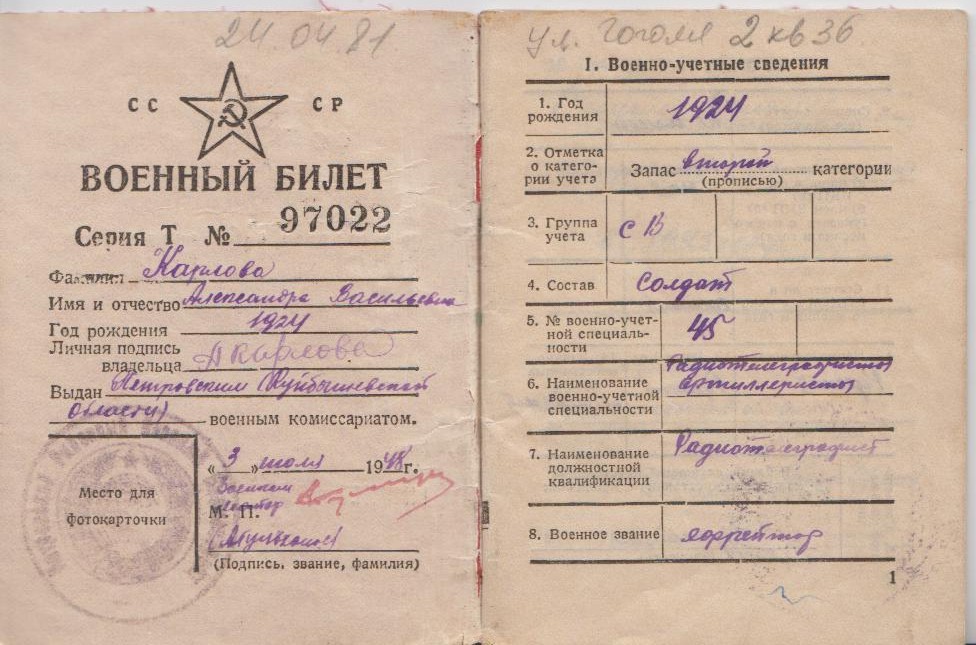 24 04 81
СС СР
ВОЕННЫЙ БИЛЕТ
Серия Т № 97022
Фамилия Карлова
Имя и отчество Александра Васильевна
Год рождения 1924
Личная подпись
владельца АКарлова
Выдан Петровским Куйбышевской
области
военным комиссариатом.
« 3 » июля 1948 г.
Военком
майор
М. П.
Место для
фотокарточки
(Подпись, звание, фамилия)
ул. Гоголя 2 кв 36
I. Военно-учетные сведения
1. Год
рождения 1924
2. Отметка
о катего-
рии учета Запас второй категории
(прописью)
3. Группа
учета СВ
4. Состав Солдат
5. № военно-учет-
ной специаль-
ности 45
6. Наименование
военно-учетной
специальности Радиотелеграфисты
артиллеристы
7. Наименование
должностной
квалификации Радиотелеграфист
8. Военное звание ефрейтор
1